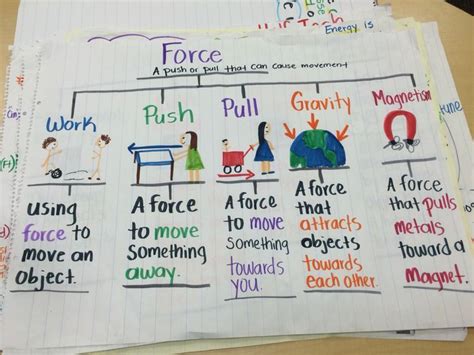 Energy is
Force
A push or pull that can cause movement
Work
Push
Pull
Gravity
Magnetism
using
force to
move an
object.
A force
to move
Something
away.
A force
to move
Something
towards
you.
A force
that
attracts
objects
towards
each other.
A force
that pulls
metals
toward a
Magnet.